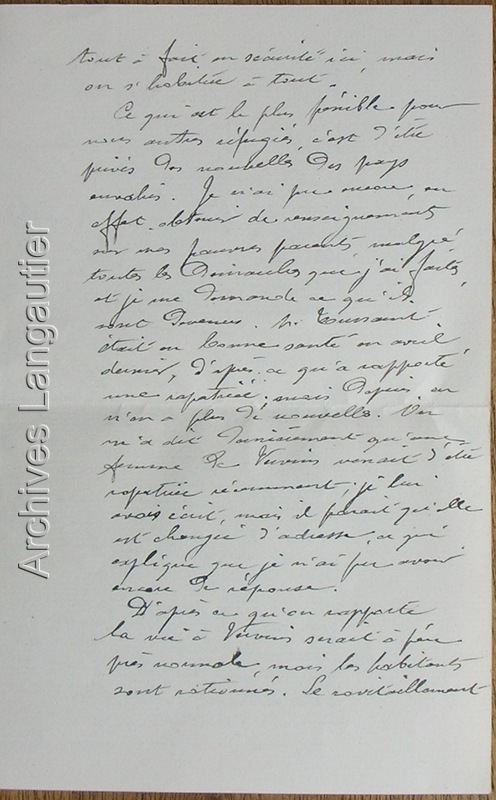 tout à fait en sécurité ici, mais
on s'habitue à tout.
Ce qui est le plus pénible pour
nous autres réfugiés, c'est d'être
privés des nouvelles des pays
envahis. Je n'ai pu encore, en
effet, obtenir de renseignements
sur mes pauvres parents, malgré
toutes les demandes que j'ai faites,
et je me demande ce qu'ils
sont devenus. Mr Toussaint
était en bonne santé en avril
dernier, d'après ce qu'a rapporté
une rapatriée ; mais depuis on
n'en a plus de nouvelles. On
m'a dit dernièrement qu'une
femme de Vervins venait d'être
rapatriée récemment, je lui
avais écrit, mais il paraît qu'elle
est changée d'adresse, ce qui
explique que je n'ai pu avoir
encore de réponse.
D'après ce qu'on rapporte
la vie à Vervins serait à peu
près normale, mais les habitants
sont rationnés. Le ravitaillement
Archives Langautier